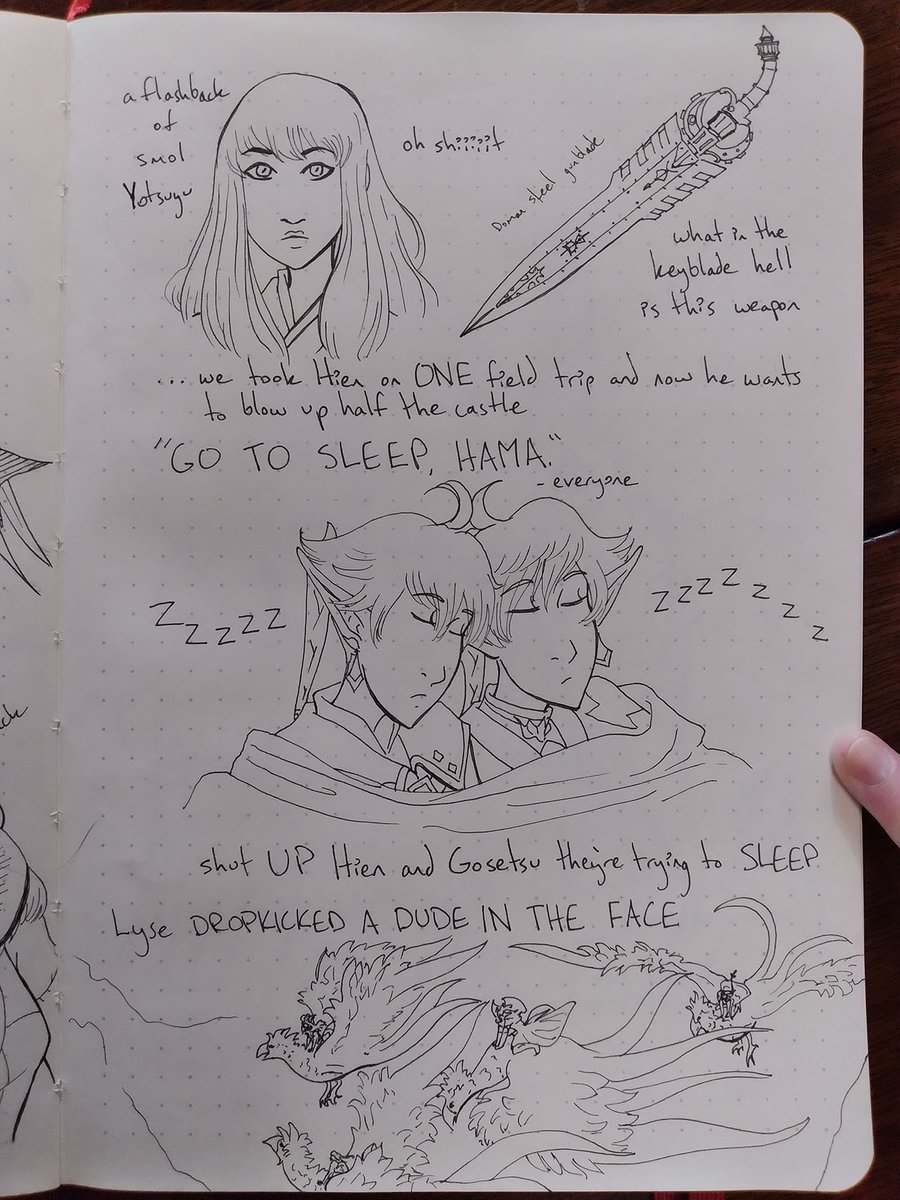 a flashback
of
smol
Yotsuyu
oh sh????t
Doman steel gunblade
what in the
keyblade hell
is this weapon
... we took Hien on ONE field trip and now he wants
to blow up half the castle
"GO TO SLEEP, HAMA."
- everyone
Z Z Z Z Z
Z Z Z Z Z Z Z
shut UP Hien and Gosetsu they're trying to SLEEP
Lyse DROPKICKED A DUDE IN THE FACE